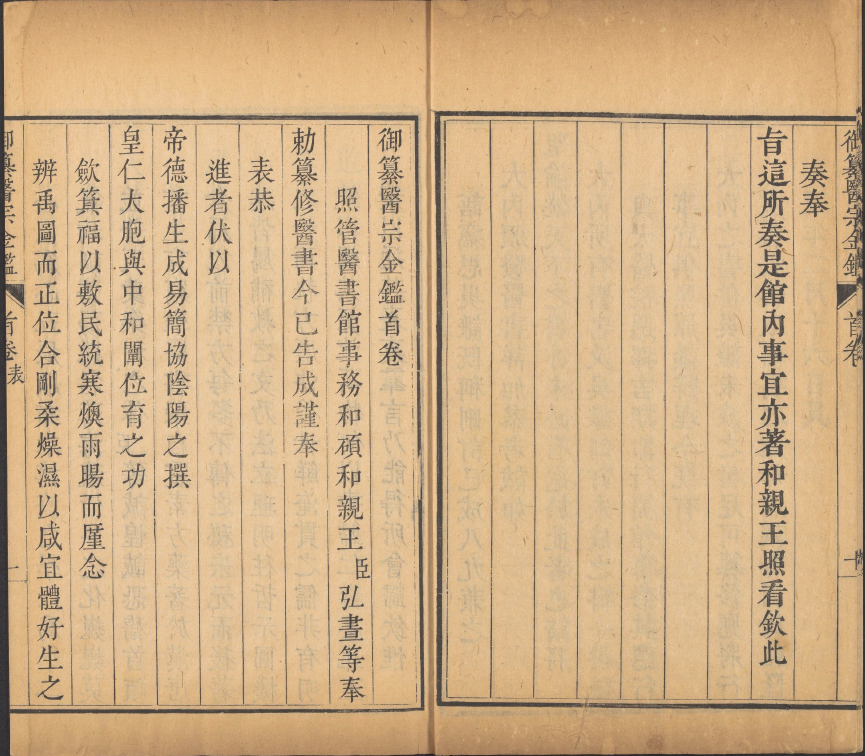 御纂醫宗金鑑
首卷
奏奉
旨這所奏是館內事宜亦著和親王照看欽此
御纂醫宗金鑑首卷
照管醫書館事務和碩和親王臣弘晝等奉
勅纂修醫書今已告成謹奉
表恭
進者伏以
帝德播生成易簡協陰陽之撰
皇仁大胞與中和闡位育之功
歛箕福以敷民統寒燠雨暘而厪念
辨禹圖而正位合剛柔燥濕以咸宜體好生之
御纂醫宗金鑑
首卷表
一